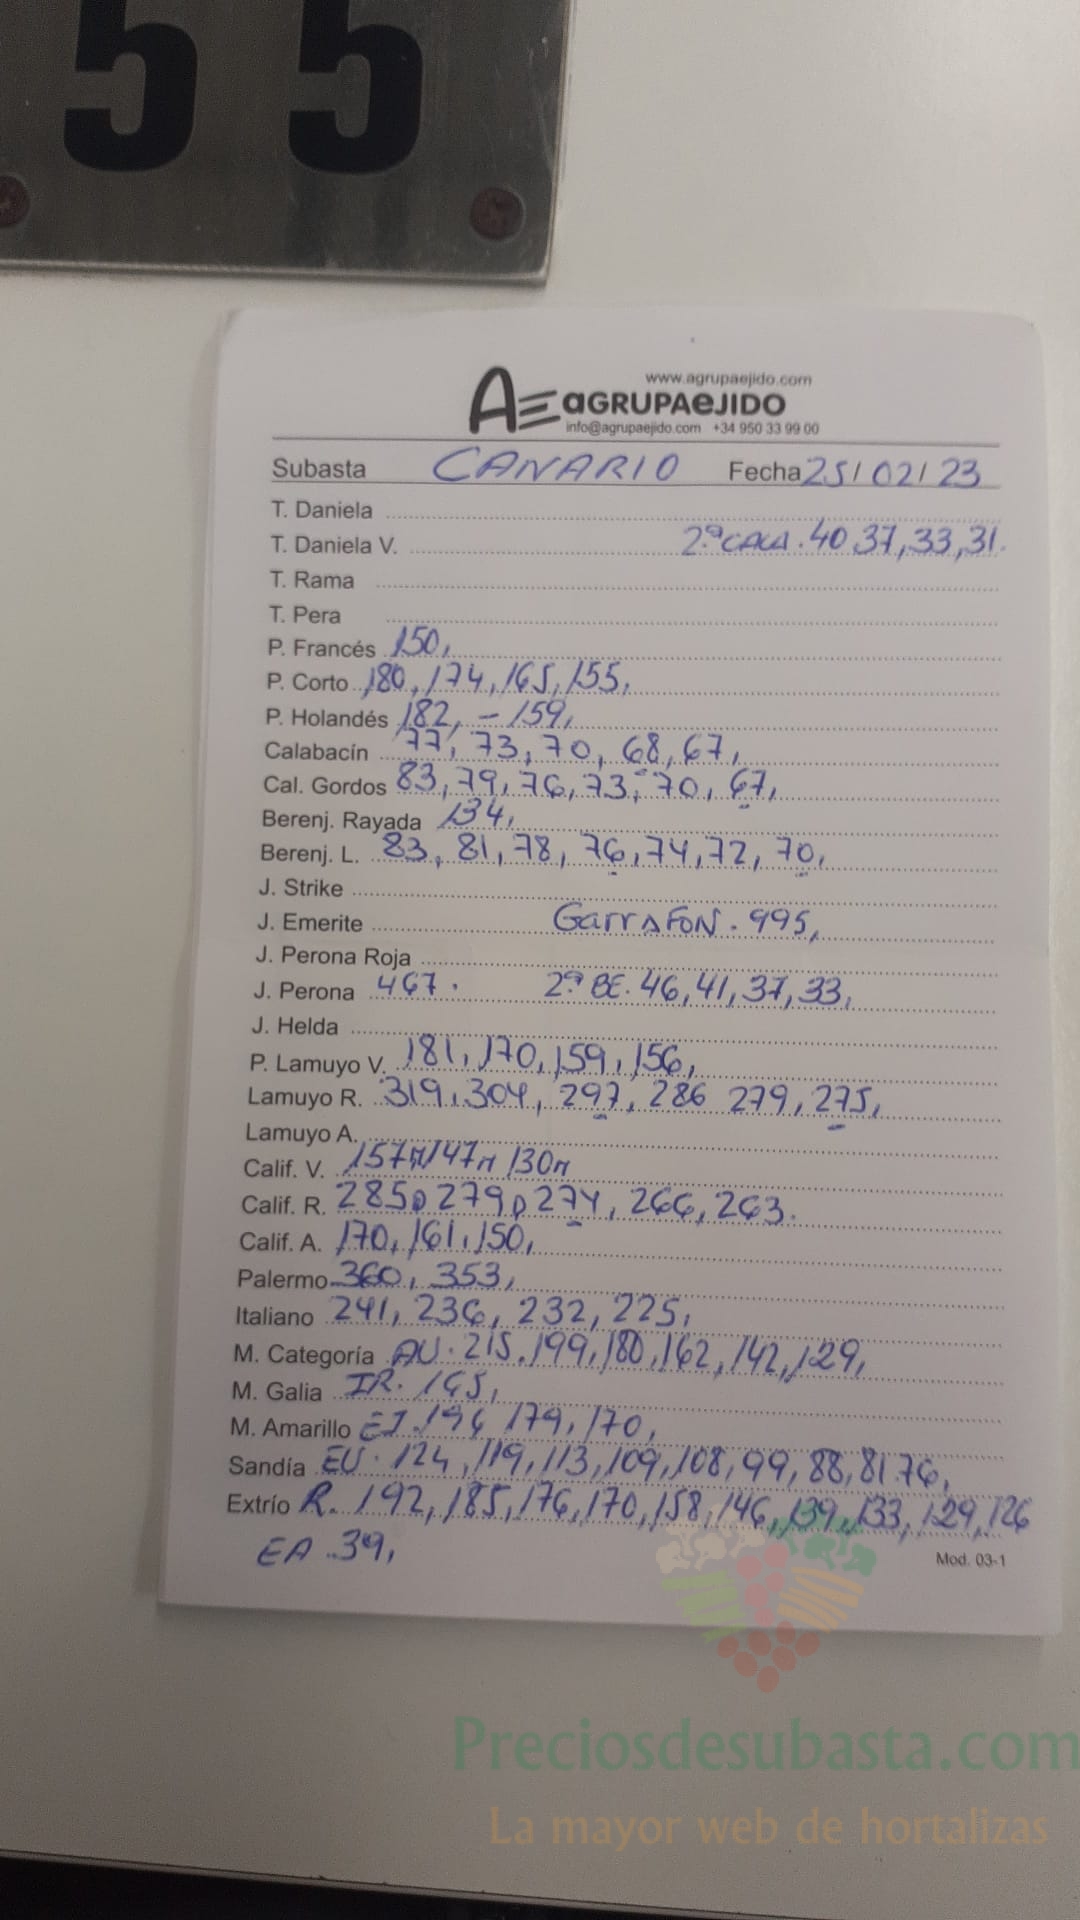 55
www.agrupaejido.com
AE aGRUPAeJIDO
info@agrupaejido.com +34 950 33 99 00
Subasta CANARIO Fecha 25/02/23
T. Daniela
T. Daniela V. 2.ª CALA. 40 37, 33, 31.
T. Rama
T. Pera
P. Francés 150,
P. Corto 180, 174, 165, 155,
P. Holandés 182, - 159,
Calabacín 77, 73, 70, 68, 67,
Cal. Gordos 83, 79, 76, 73, 70, 67,
Berenj. Rayada 134,
Berenj. L. 83, 81, 78, 76, 74, 72, 70,
J. Strike
J. Emerite GarrAFON. 995,
J. Perona Roja
J. Perona 467. 2ª BE. 46, 41, 37, 33,
J. Helda
P. Lamuyo V. 181, 170, 159, 156,
Lamuyo R. 319, 304, 297, 286 279, 275,
Lamuyo A.
Calif. V. 157M 147M 130M
Calif. R. 285D 279D 274, 266, 263.
Calif. A. 170, 161, 150,
Palermo 360, 353,
Italiano 241, 236, 232, 225,
M. Categoría AU. 215, 199, 180, 162, 142, 129,
M. Galia IR. 165,
M. Amarillo EJ. 196 179, 170,
Sandía EU. 124, 119, 113, 109, 108, 99, 88, 81 76,
Extrío R. 192, 185, 176, 170, 158, 146, 139, 133, 129, 126
EA. 39,
Mod. 03-1
Preciosdesubasta.com
La mayor web de hortalizas